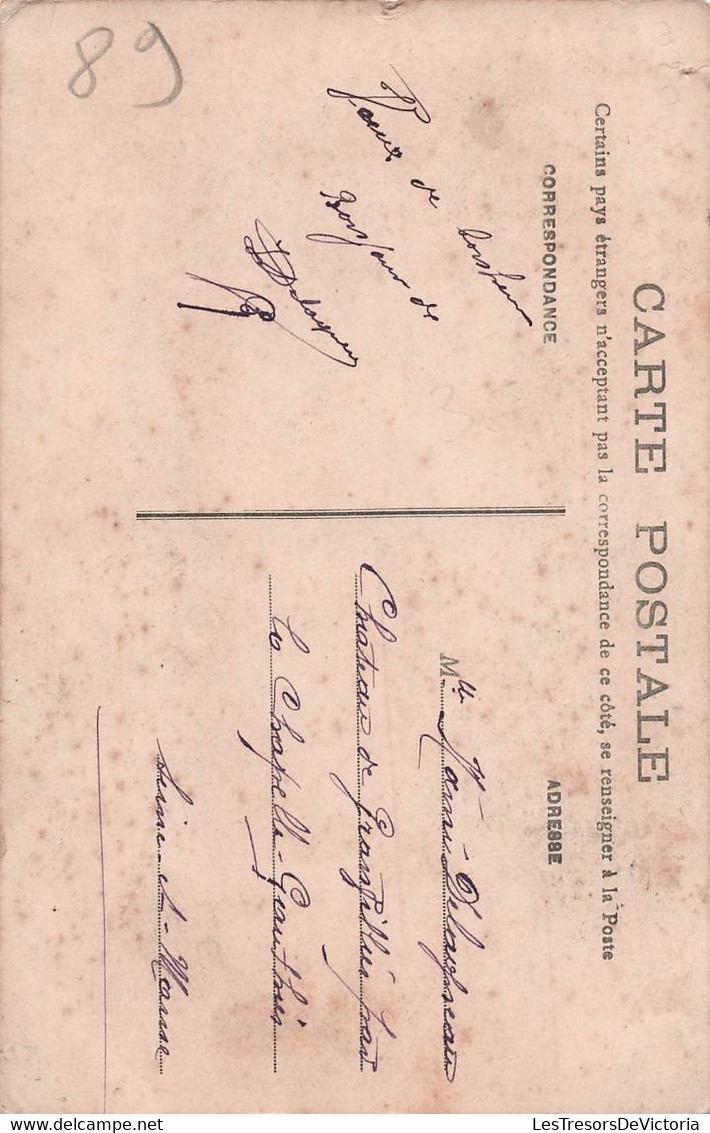 CARTE POSTALE
Certains pays étrangers n'acceptant pas la correspondance de ce côté, se renseigner à la Poste
CORRESPONDANCE
ADRESSE
89
de bonheur
Bonjour de
Mlle
Château de
la Chapelle-Gauthier
Seine-et-Marne
LesTresorsDeVictoria
www.delcampe.net